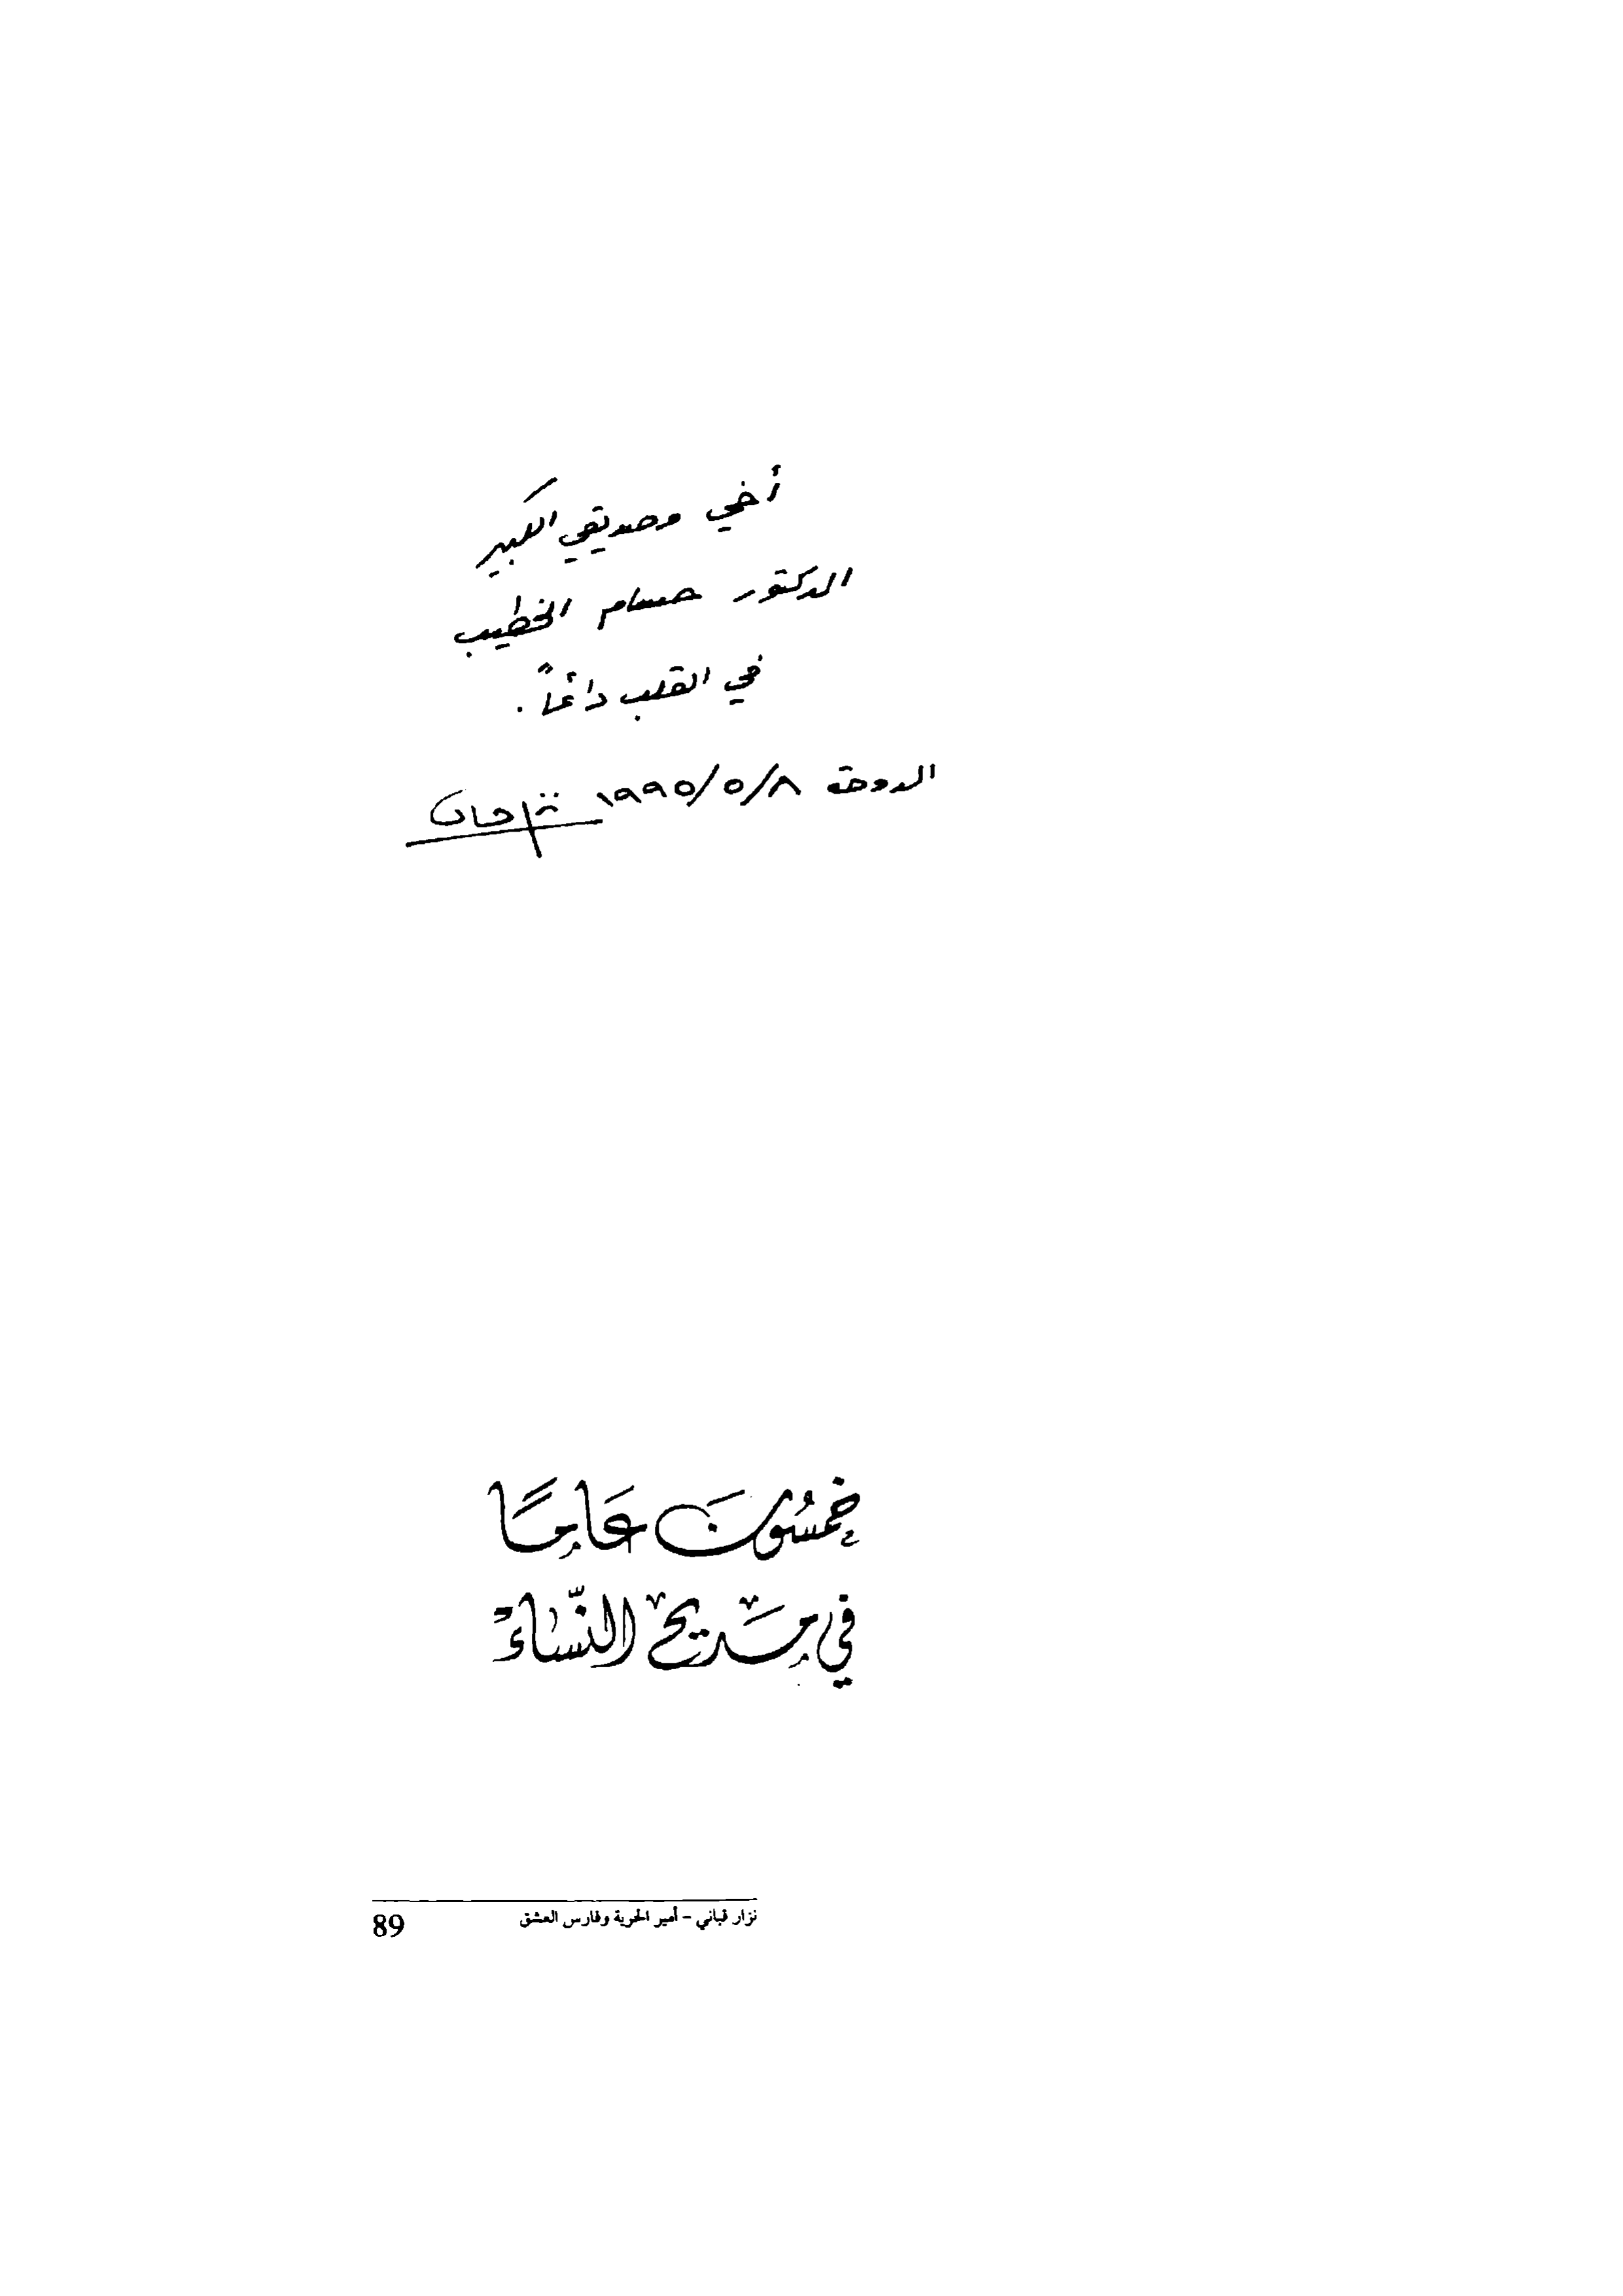 أخي وصديقي الكبير
الدكتور حسام الخطيب
في القلب دائماً.
الدوحة ١٩٩٥/٥/٨ نزار قباني
خَمسُونَ عَامًا
في مَديحِ النِّسَاءْ
نزار قباني - أمير الحرية وفارس العشق
89